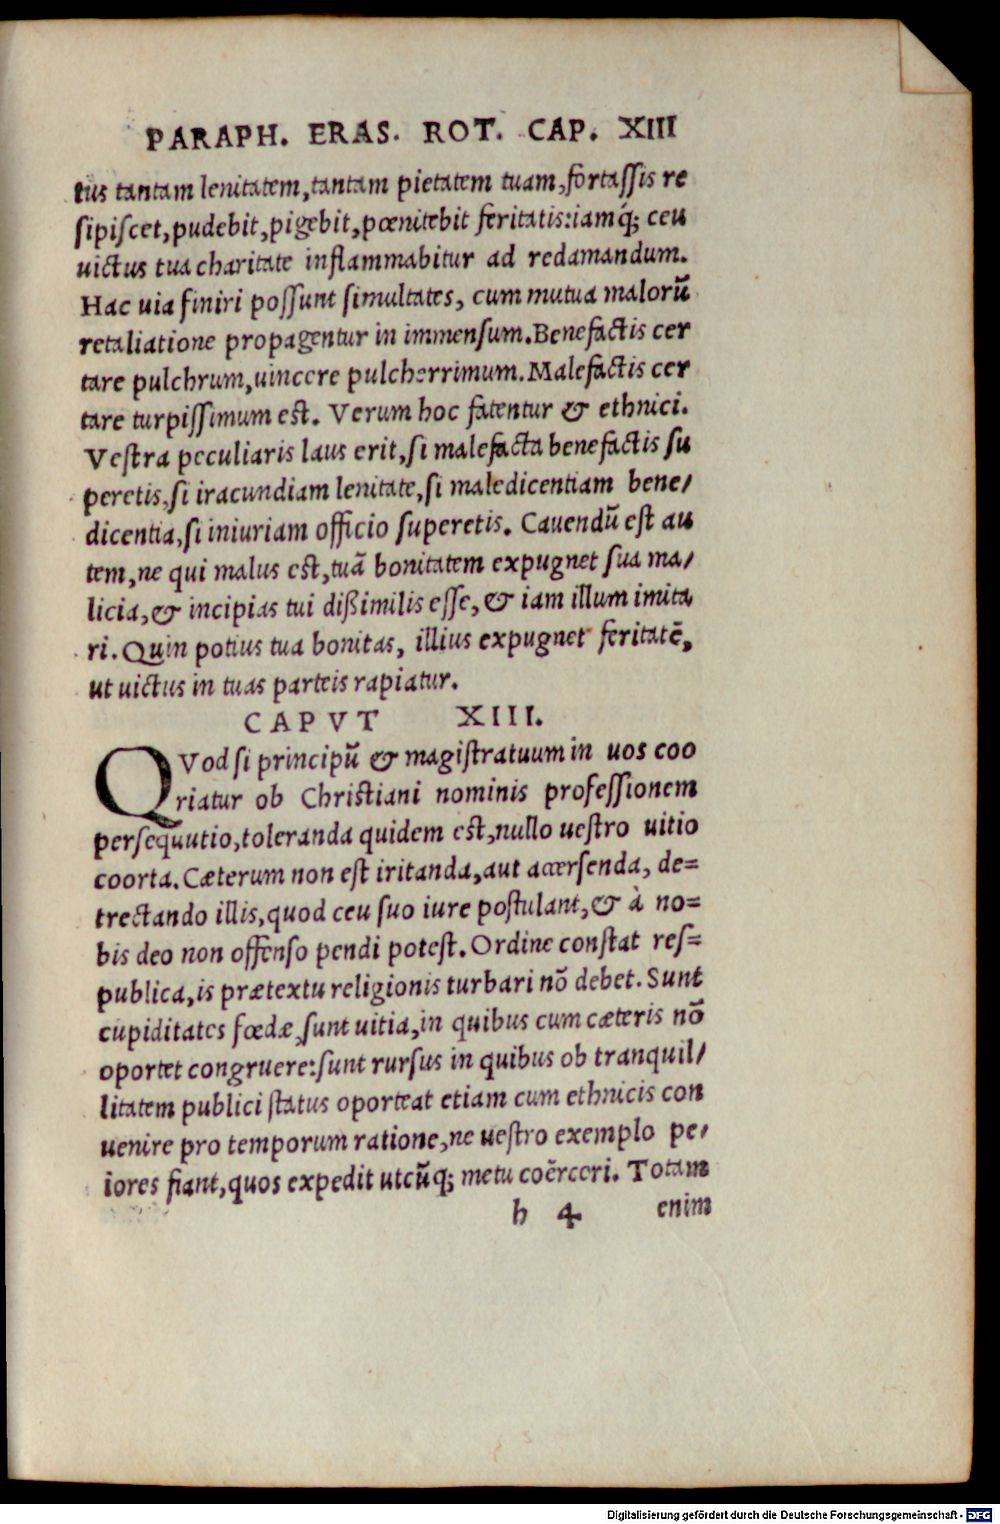 PARAPH. ERAS. ROT. CAP. XIII
tus tantam lenitatem,tantam pietatem tuam,fortaſſis re
ſipiſcet,pudebit,pigebit,pœnitebit feritatis:iamq́; ceu
uictus tua charitate inflammabitur ad redamandum.
Hac uia finiri poſſunt ſimultates, cum mutua malorũ
retaliatione propagentur in immenſum.Benefactis cer
tare pulchrum,uincere pulcherrimum.Malefactis cer
tare turpiſſimum eſt. Verum hoc fatentur & ethnici.
Veſtra peculiaris laus erit,ſi malefacta benefactis ſu
peretis,ſi iracundiam lenitate,ſi maledicentiam bene/
dicentia,ſi iniuriam officio ſuperetis. Cauendũ eſt au
tem,ne qui malus eſt,tuã bonitatem expugnet ſua ma/
licia,& incipias tui diſſimilis eſſe,& iam illum imita
ri.Quin potius tua bonitas, illius expugnet feritatẽ,
ut uictus in tuas parteis rapiatur.
CAPVT XIII.
QVod ſi principũ & magiſtratuum in uos coo
riatur ob Chriſtiani nominis profeſſionem
perſequutio,toleranda quidem eſt,nullo ueſtro uitio
coorta.Cæterum non eſt iritanda,aut accerſenda, de=
trectando illis,quod ceu ſuo iure poſtulant,& à no=
bis deo non offenſo pendi poteſt.Ordine conſtat reſ=
publica,is prætextu religionis turbari nõ debet.Sunt
cupiditates fœdæ,ſunt uitia,in quibus cum cæteris nõ
oportet congruere:ſunt rurſus in quibus ob tranquil/
litatem publici ſtatus oporteat etiam cum ethnicis con
uenire pro temporum ratione,ne ueſtro exemplo pe/
iores fiant,quos expedit utcũq; metu coẽrceri. Totam
h 4 enim
Digitalisierung gefördert durch die Deutsche Forschungsgemeinschaft - DFG